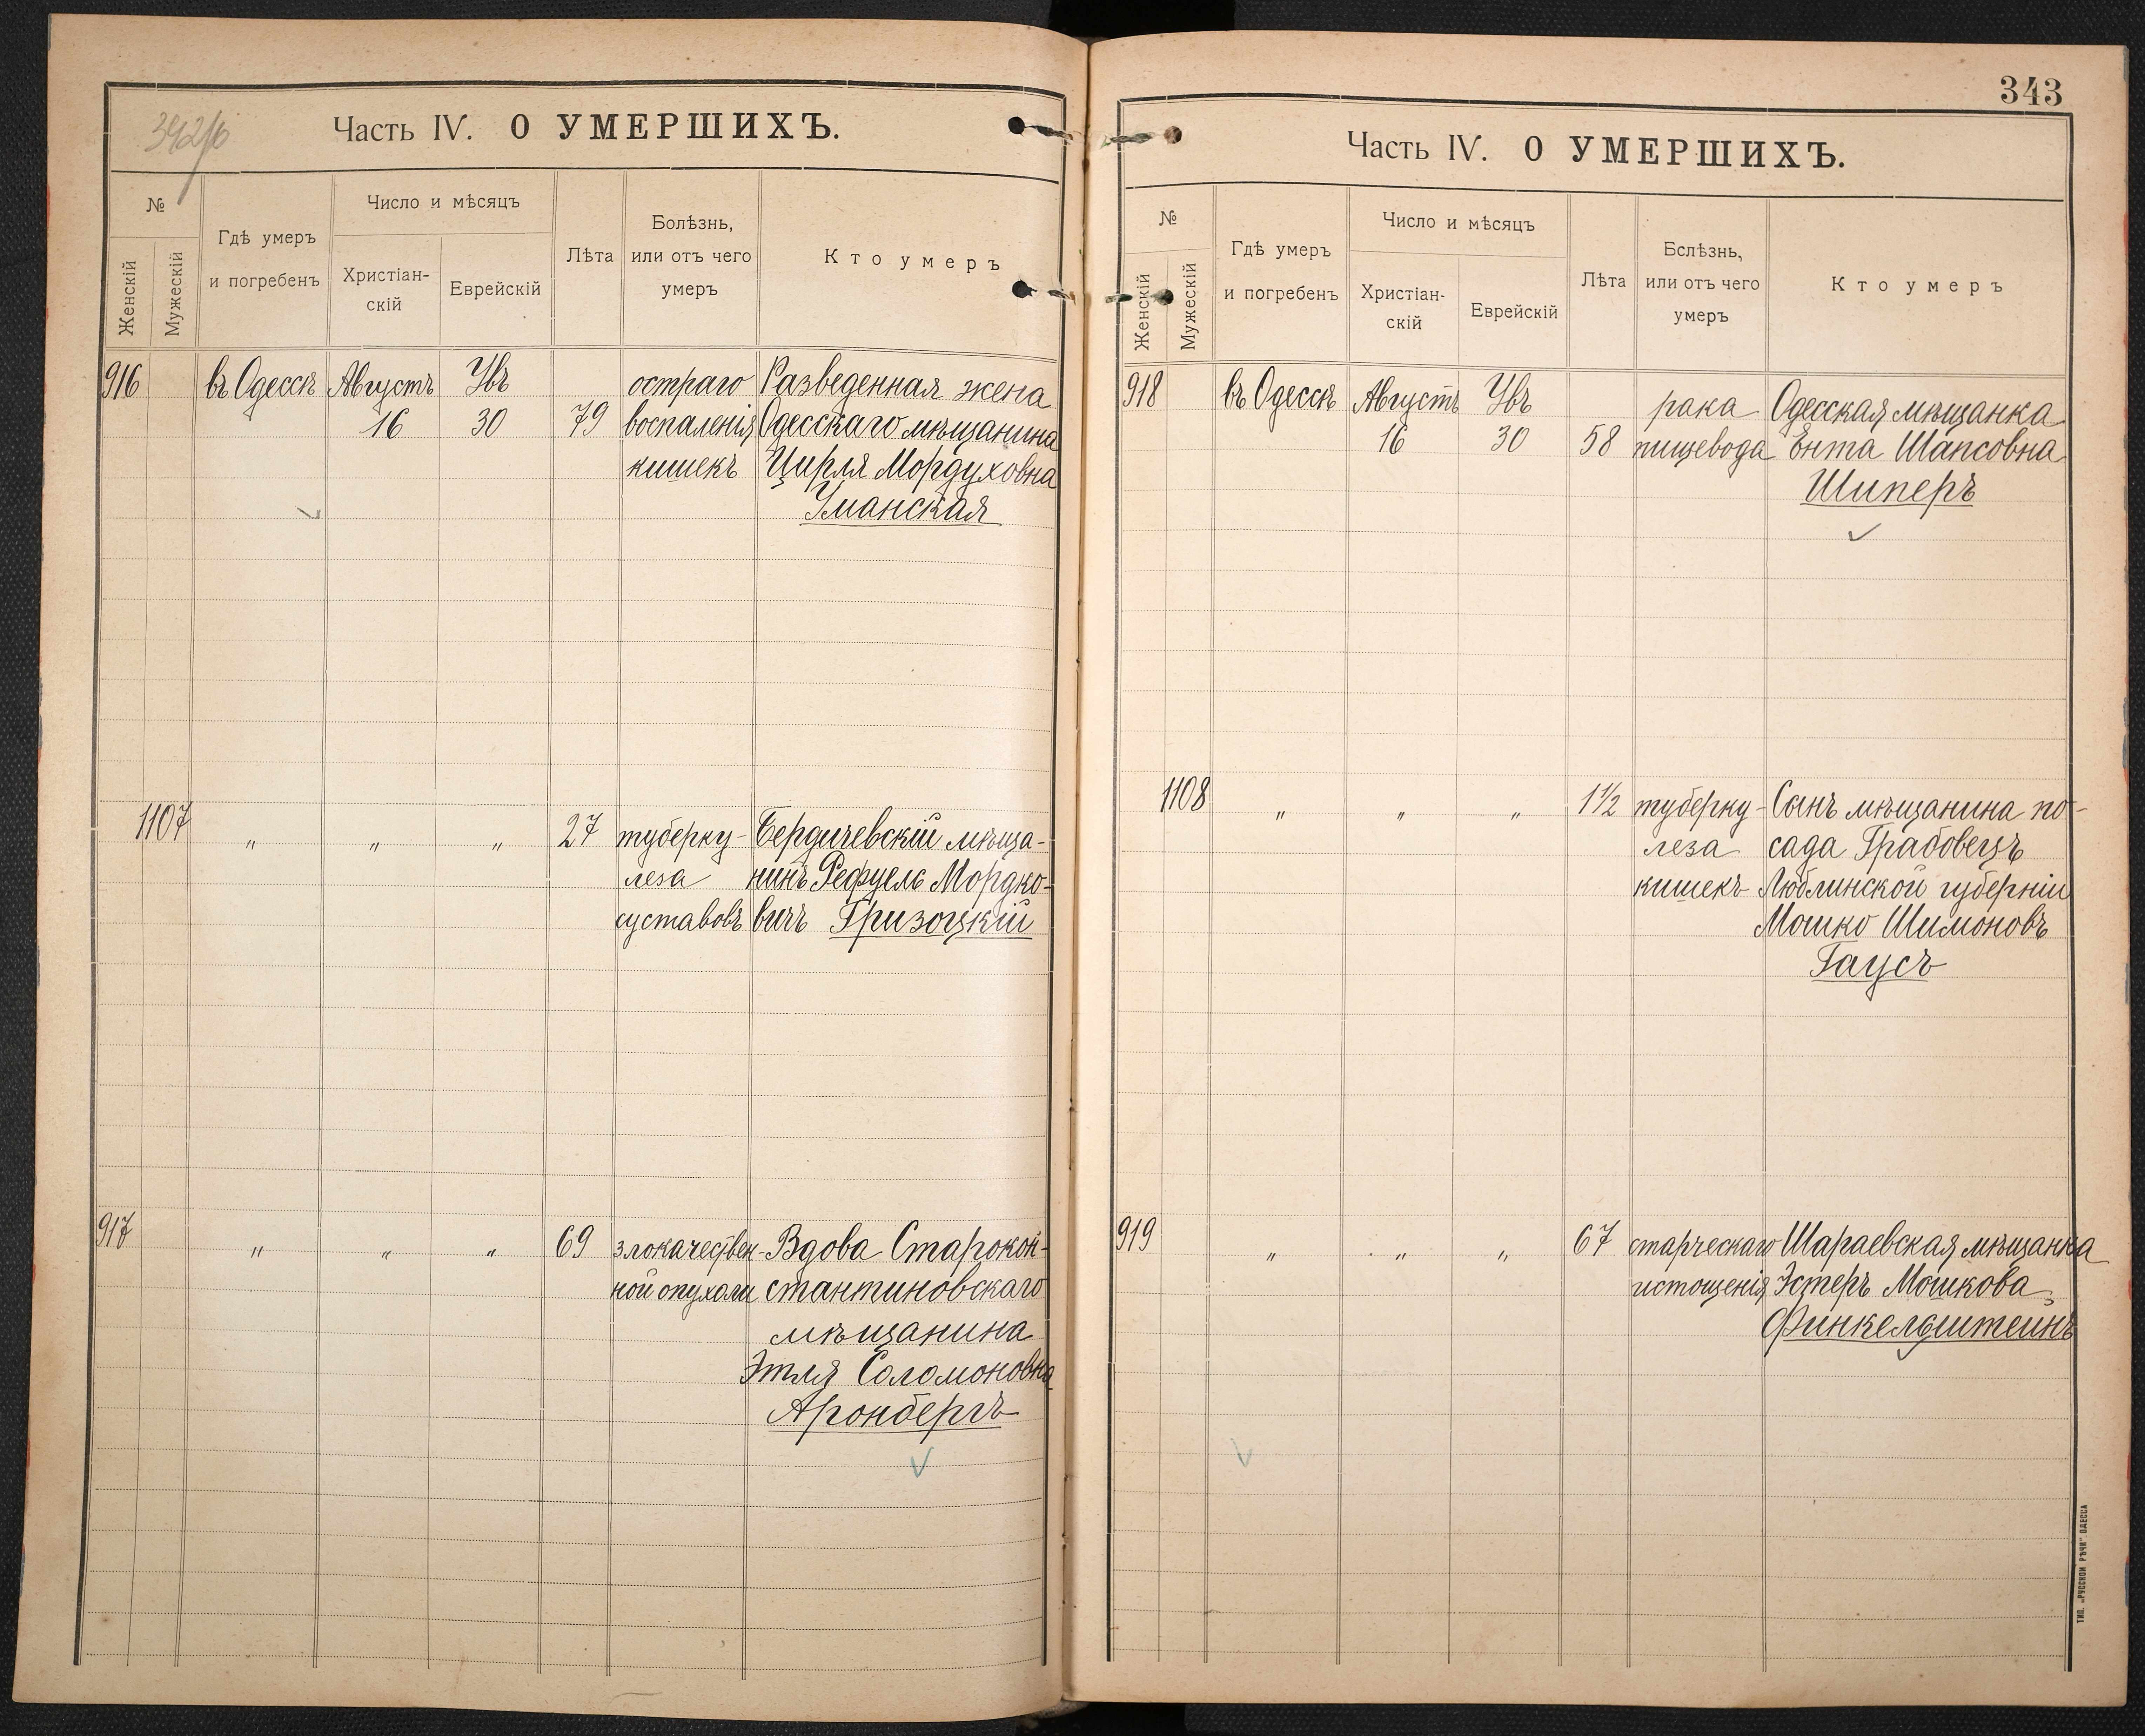 342/б
Часть IV. О УМЕРШИХЪ.
№
Женскій
Мужескій
Гдѣ умеръ
и погребенъ
Число и мѣсяцъ
Христіан-
скій
Еврейскій
Лѣта
Болѣзнь,
или отъ чего
умеръ
Кто умеръ
916 въ Одессѣ Августъ Увъ остраго Разведенная жена
16 30 79 воспаленія Одесскаго мѣщанина
кишекъ Цирля Мордуховна
Уманская
1107 " " " 27 туберку- Бердичевскій мѣща-
леза нинъ Рефуель Мордко-
суставовъ вичъ Гризоцкій
917 " " " 69 злокачествен- Вдова Старокон-
ной опухоли стантиновскаго
мѣщанина
Этля Соломоновна
Аронбергъ
343
Часть IV. О УМЕРШИХЪ.
№
Женскій
Мужескій
Гдѣ умеръ
и погребенъ
Число и мѣсяцъ
Христіан-
скій
Еврейскій
Лѣта
Бслѣзнь,
или отъ чего
умеръ
Кто умеръ
918 въ Одессѣ Августъ Увъ рака Одесская мѣщанка
16 30 58 пищевода Ента Шапсовна
Шиперъ
1108 " " " 1½ туберку- Сынъ мѣщанина по-
леза сада Грабовецъ
кишекъ Люблинской губерніи
Мошко Шимоновъ
Гаусъ
919 " " " 67 старческаго Шараевская мѣщанка
истощенія Эстеръ Мошкова
Финкельштейнъ
ТИП. „РУССКОЙ РѢЧИ" ОДЕССА